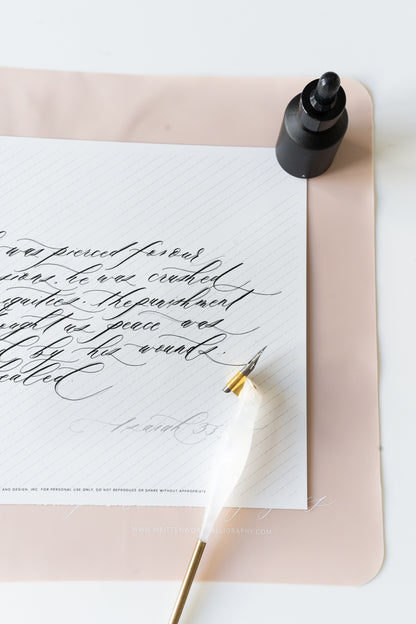 was pierced for our
sions, he was crushed
iquities. the punishment
ought us peace was
d by his wounds.
healed.
Isaiah 53:
AND DESIGN, INC. FOR PERSONAL USE ONLY. DO NOT REPRODUCE OR SHARE WITHOUT APPROPRIATE